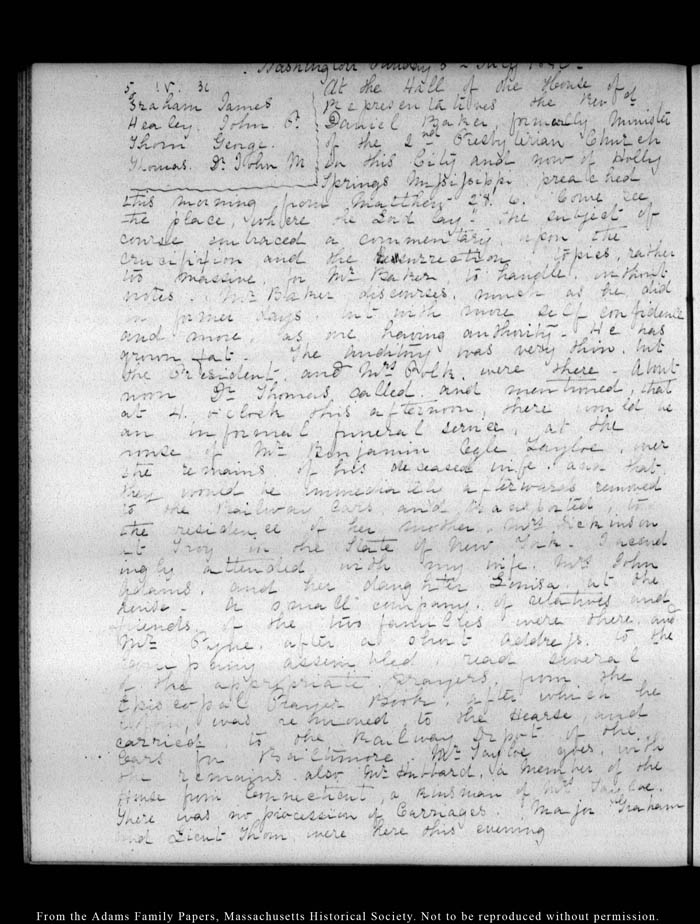 Washington Sunday 5 July 1846.
5. IV. 30
Graham James
Healey. John P.
Thom George.
Thomas. Dr. John M
At the Hall of the House of
Representatives the Revd
Daniel Baker formerly Minister
of the 2nd Presbyterian Church
in this City and now of Holly
Springs Mississippi preached
this morning from Matthew 28. 6. Come see
the place, where the Lord lay. The subject of
course embraced a commentary, upon the
crucifixion and the resurrection. topics, rather
too massive, for Mr Baker, to handle, without
notes. Mr Baker, discourses, much as he did
in former days. but with more self confidence
and more, as one having authority. He has
grown fat. The auditory was very thin, but
the President and Mrs Polk, were there. About
noon Dr Thomas, called and mentioned, that
at 4. o'clock this afternoon, there would be
an informal funeral service, at the
house of Mr Benjamin Ogle Tayloe, over
the remains of his deceased wife, and that
they would be immediately afterwards removed
to the Railway Cars and transported, to
the residence of her mother, Mrs Dickinson
at Troy in the State of New York. I accord
ingly attended with my wife, Mrs John
Adams, and her daughter Louisa. at the
house. A small company, of relatives and
friends, of the two families were there, and
Mr Pyne, after a short address, to the
company assembled, read several
of the appropriate Prayers, from the
Episcopal Prayer Book, after which the
was removed, to the Hearse, and
carried, to the Railway Depot, of the
Cars for Baltimore. Mr Tayloe goes, with
the remains. also Mr Hubbard, a member of the
House from Connecticut, a kinsman of Mrs Tayloe.
There was no procession of Carriages. Major Graham
and Lieut Thom, were here this evening
From the Adams Family Papers, Massachusetts Historical Society. Not to be reproduced without permission.